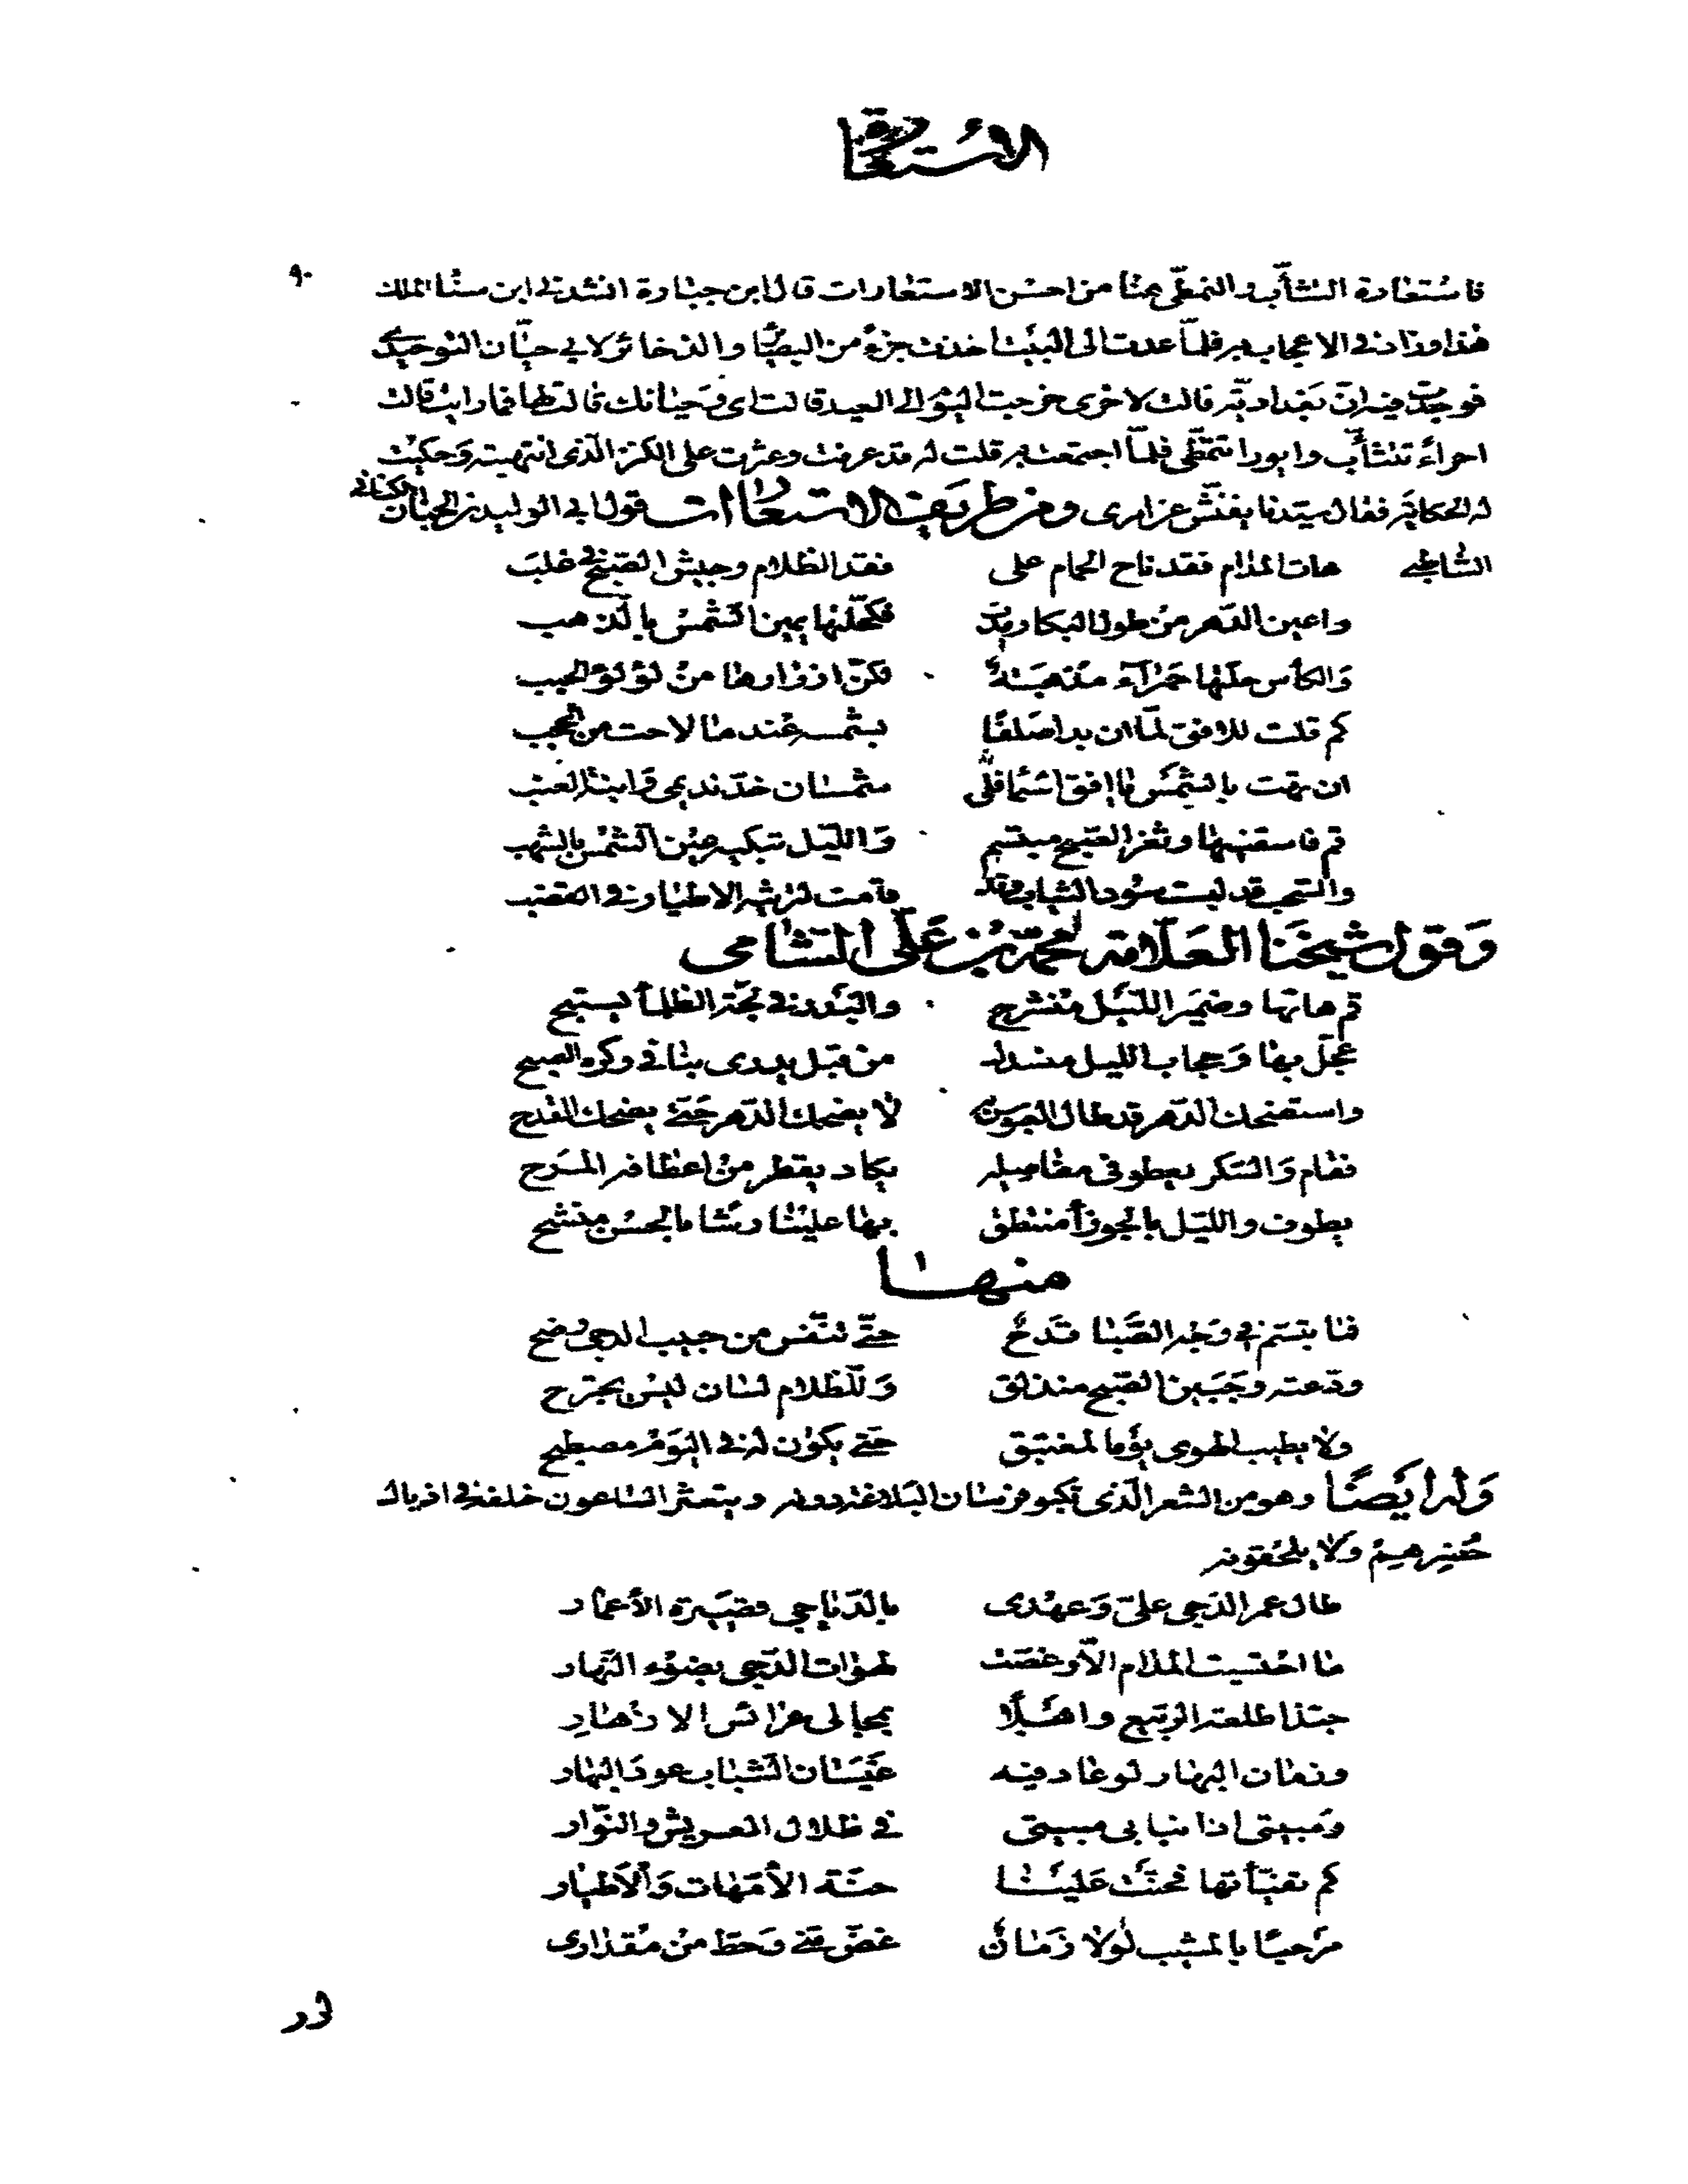 الاستعارة
٩٠
فاستعارة التثأب والتمطي هنا من احسن الاستعارات قال ابن جبارة انشدني ابن سنا الملك
هذا وزاد في الاعجاب به فلما عدت الى البيت اخذت جزءً من البصائر والذخائر لابي حيان التوحيدي
فوجدت فيه ان بغدادية قالت لاخرى خرجت اليوم الى العيد قالت اى وحياتك قالت لها فما رايت قالت
احراءً تتثأب وايورا تتمطى فلما اجتمعت به قلت له قد عرفت وعثرت على الكنز الذى انتهبته وحكيت
له الحكاية فقال سيدنا يفتش عن امرى ومن ظريف الاستعارات قول ابي الوليد بن الجنان الكناني
الشاطبي هات المدام فقد ناح الحمام على فقد الظلام وجيش الصبح في غلب
واعين الدهر من طول البكا رمدت فكحلتها يمين الشمس بالذهب
والكأس حلتها حمراء مذهبة لكن ازرارها من لؤلؤ الحبب
كم قلت للافق لما ان بدا صلفا بشمسه عند ما لاحت من الحجب
ان تهت بالشمس يا افق السما فلي شمسان خد نديمي وابنة العنب
قم فاسقنيها وثغر الصبح مبتسم والليل تبكيه عين الشمس بالشهب
والسحب قد لبست سود الثياب وقد قامت لترثيه الاطيار في القضب
وقول شيخنا العلامة محمد بن علي الشامي
قم هاتها وضمير الليل منشرح والبدر في لجة الظلمأ يستبح
عجل بها وحجاب الليل منسدل من قبل يبدى بنا في وكره الصبح
واستضحك الدهر قد طال العبوس به لا يضحك الدهر حتى يضحك القدح
فقام والسكر يعطو في مفاصله يكاد يقطر من اعطافه المرح
يطوف والليل بالجوزأ منتطق بها علينا رشا بالحسن متشح
منها
فما تبسم في وجه الصبا قدح حتى تنفس من جيب الدجى وضح
ودعته وجبين الصبح منذلق وللظلام لسان ليس يجترح
ولا يطيب الهوى يوما لمغتبق حتى يكون له في اليوم مصطبح
وله ايضا وهو من الشعر الذى تكبو فرسان البلاغة دونه ويتعثر الساعون خلفه في اذيال
حصرهم ولا يلحقونه
طال عمر الدجى على وعهدى بالدياجي قصيرة الأعمار
ما احتسيت المدام الا وغصت لهوات الدجى بضوء النهار
حبذا طلعة الربيع واهلا بمجالى عرائس الازهار
وزمان البهار لو عاد فيه عنفسان الشباب عود البهار
ومبيتى اذا نبا بى مبيتى في ظلال العريش والنوار
كم تفيأتها فحنت علينا حنة الأمهات والأطيار
مرحبا بالمشيب لولا زمان غض مني وحط من مقدارى